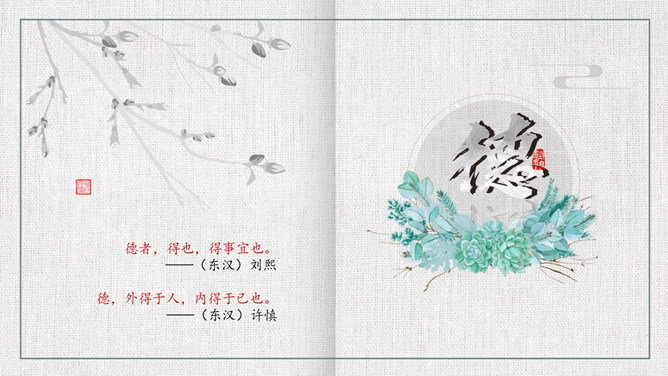 德者，得也，得事宜也。
——（东汉）刘熙
德，外得于人，内得于已也。
——（东汉）许慎
德